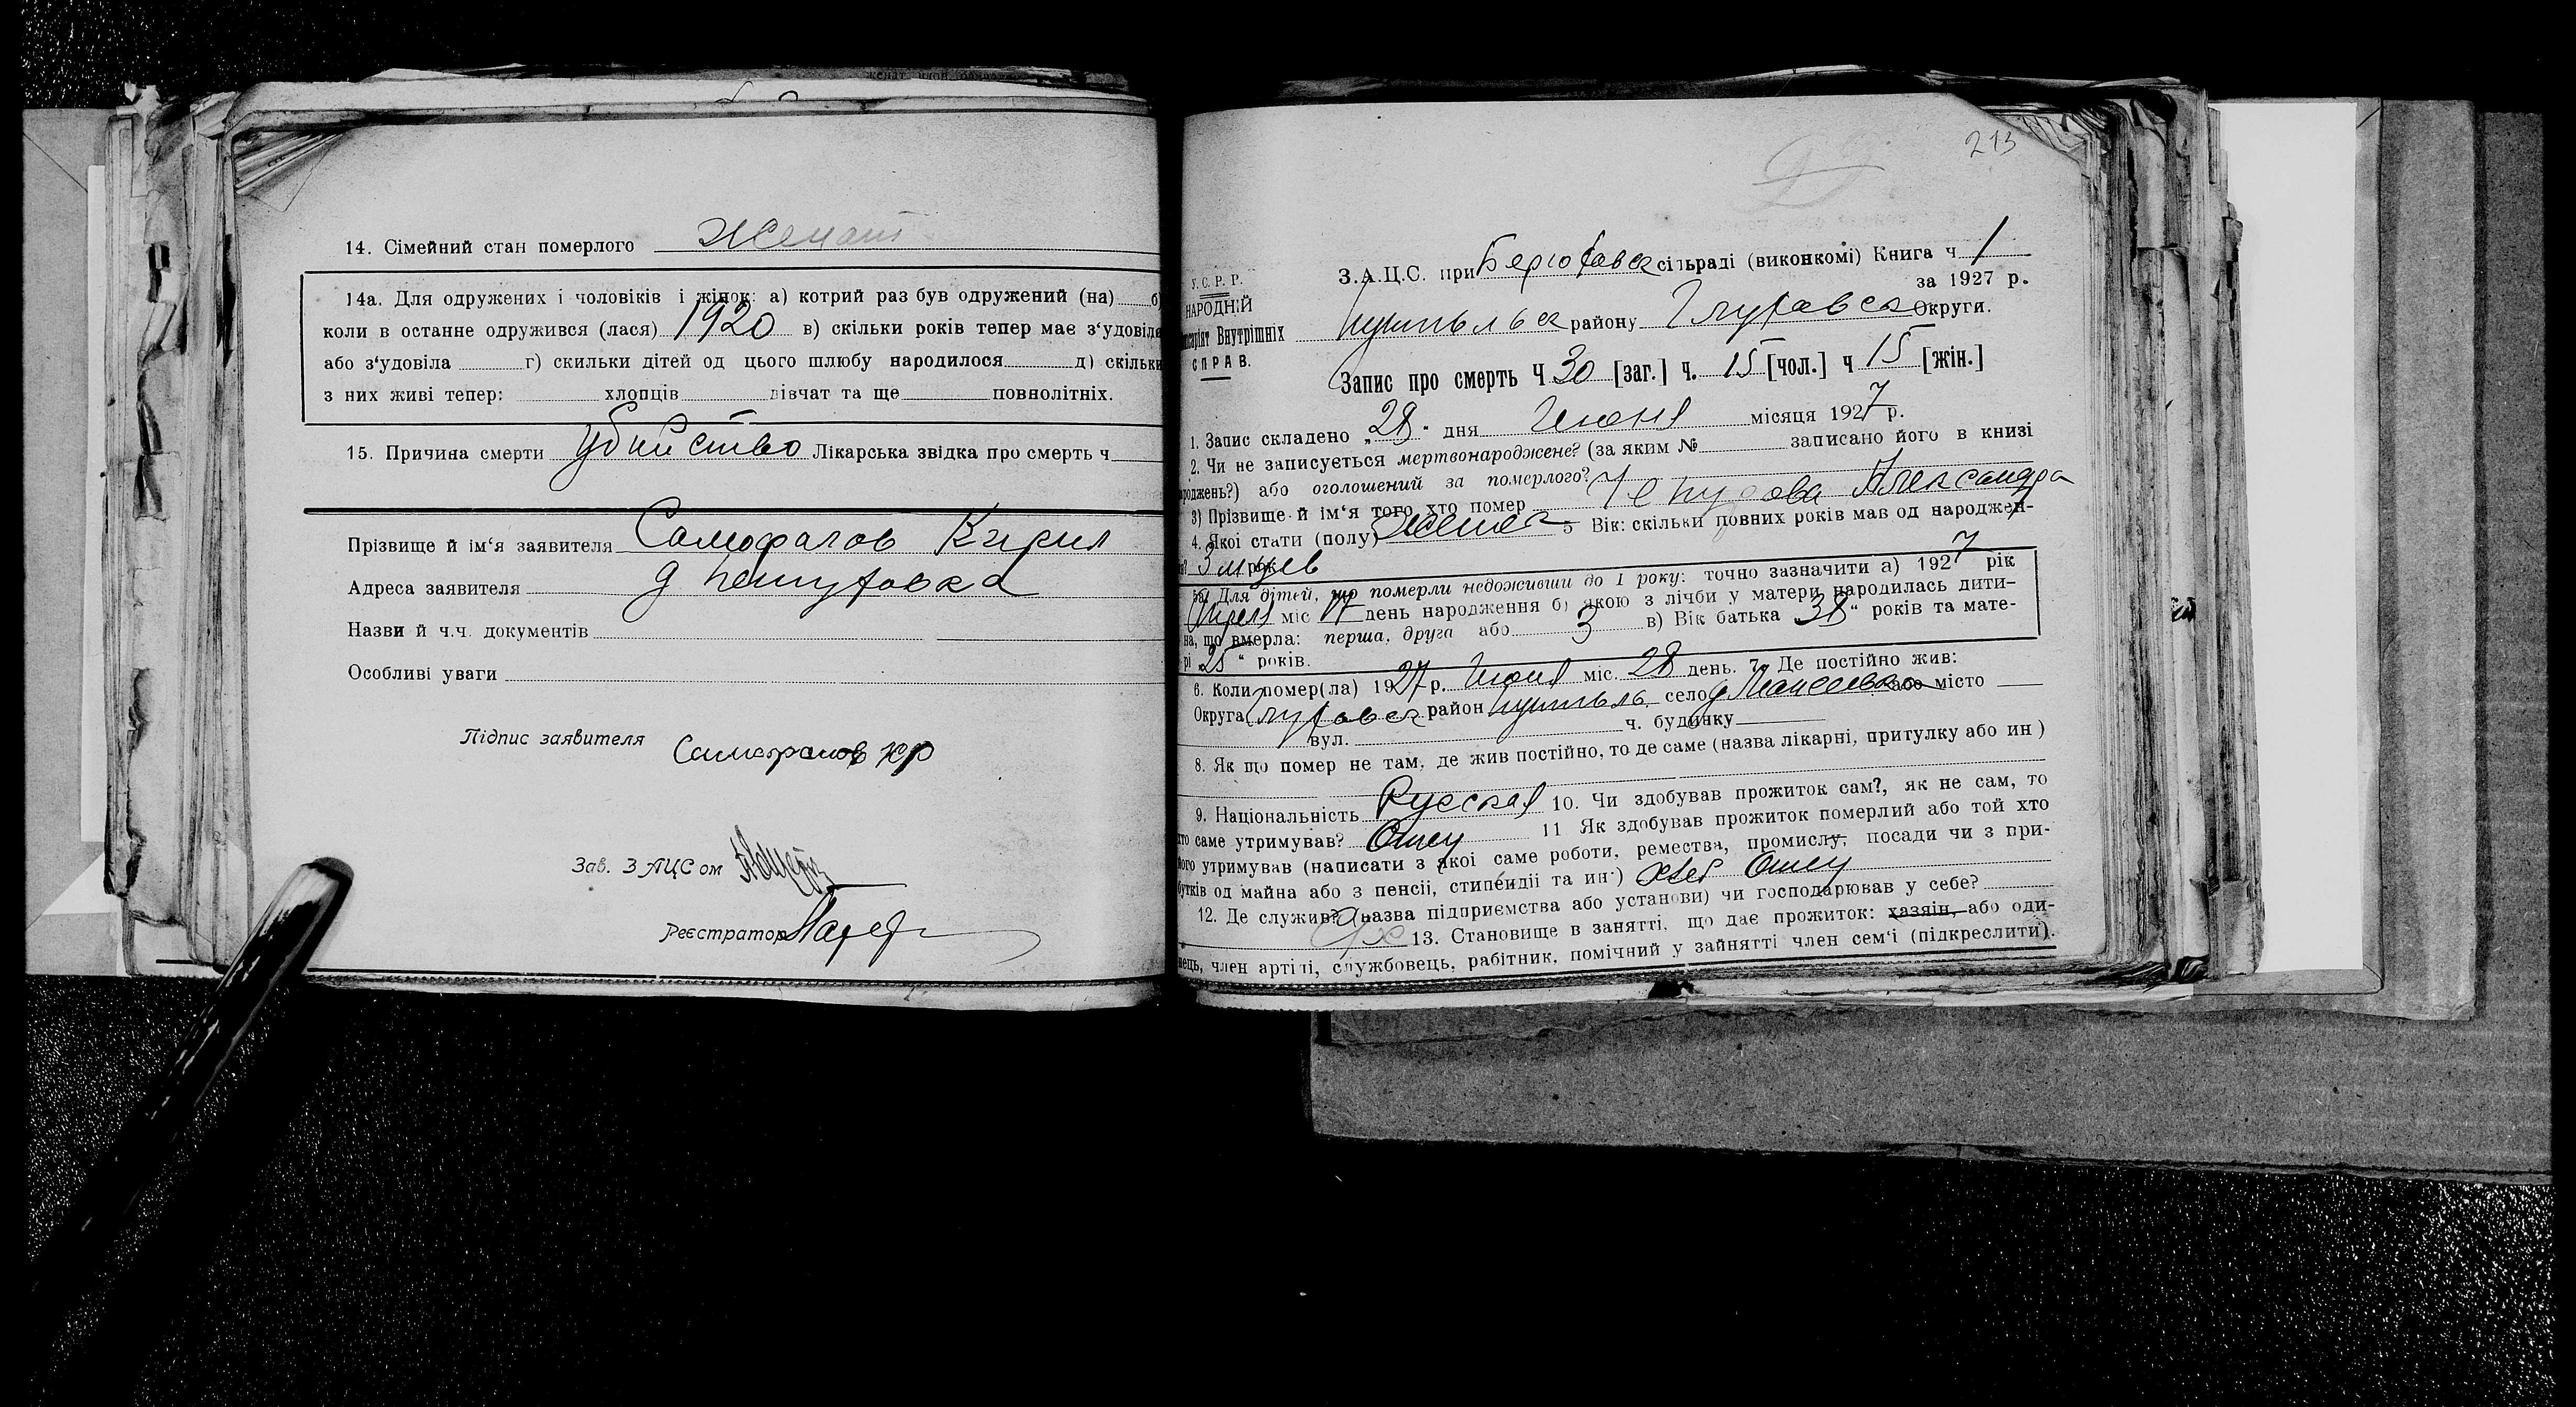 14. Сімейний стан померлого Женат
14а. Для одружених і чоловіків і жінок: а) котрий раз був одружений (на) б)
коли в останне одружився (лася) 1920 в) скільки років тепер має з‘удовіла
або з‘удовіла г) скильки дітей од цього шлюбу народилося д) скільки
з них живі тепер: хлопців дівчат та ще повнолітніх.
15. Причина смерти Убийство Лікарська звідка про смерть ч
Прізвище й ім‘я заявителя Самофалов Кирил
Адреса заявителя д
Назви й ч.ч. документів
Особливі уваги
Підпис заявителя Самофалов Кр
Зав. ЗАЦСом
Реєстратор
213
З.А.Ц.С. при сільраді (виконкомі) Книга ч 1
за 1927 р.
У.С.Р.Р.
НАРОДНІЙ
Внутрішніх
СПРАВ.
Путивльск району Глуховск Округи.
Запис про смерть Ч 30 [заг.] ч. 15 [чол.] ч 15 [жін.]
1. Запис складено „28“ дня Июня місяця 1927 р.
2. Чи не записується мертвонароджене? (за яким № записано його в книзі
роджень?) або оголошений за померлого?
3) Прізвище й ім‘я того, хто помер Александра
4. Якої стати (полу) Женск 5 Вік: скільки повних років мав од народжен-
3 м-цев
5а) Для дітей, що померли недоживши до 1 року: точно зазначити а) 1927 рік
міс 17 день народження б) якою з лічби у матери народилась дити-
на, що вмерла: перша, друга або 3 в) Вік батька 38“ років та мате-
рі „25“ років.
6. Коли помер(ла) 1927 р. Июня міс. 28 день. 7. Де постійно жив:
Округа Глуховск район Путивль село д або місто
вул. ч. будинку
8. Як що помер не там, де жив постійно, то де саме (назва лікарні, притулку або ин)
9. Національність Русская 10. Чи здобував прожиток сам?, як не сам, то
хто саме утримував? Отец 11 Як здобував прожиток померлий або той хто
його утримував (написати з якої саме роботи, ремества, промислу, посади чи з при-
бутків од майна або з пенсії, стипендії та ин.) Отец
12. Де служив? (назва підприємства або установи) чи господарював у себе?
13. Становище в занятті, що дає прожиток: хазяін, або оди-
нець, член артілі, службовець, рабітник, помічний у зайнятті член сем‘і (підкреслити).